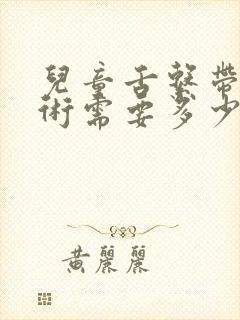 兒童舌繫帶
術需要多少
黃麗麗